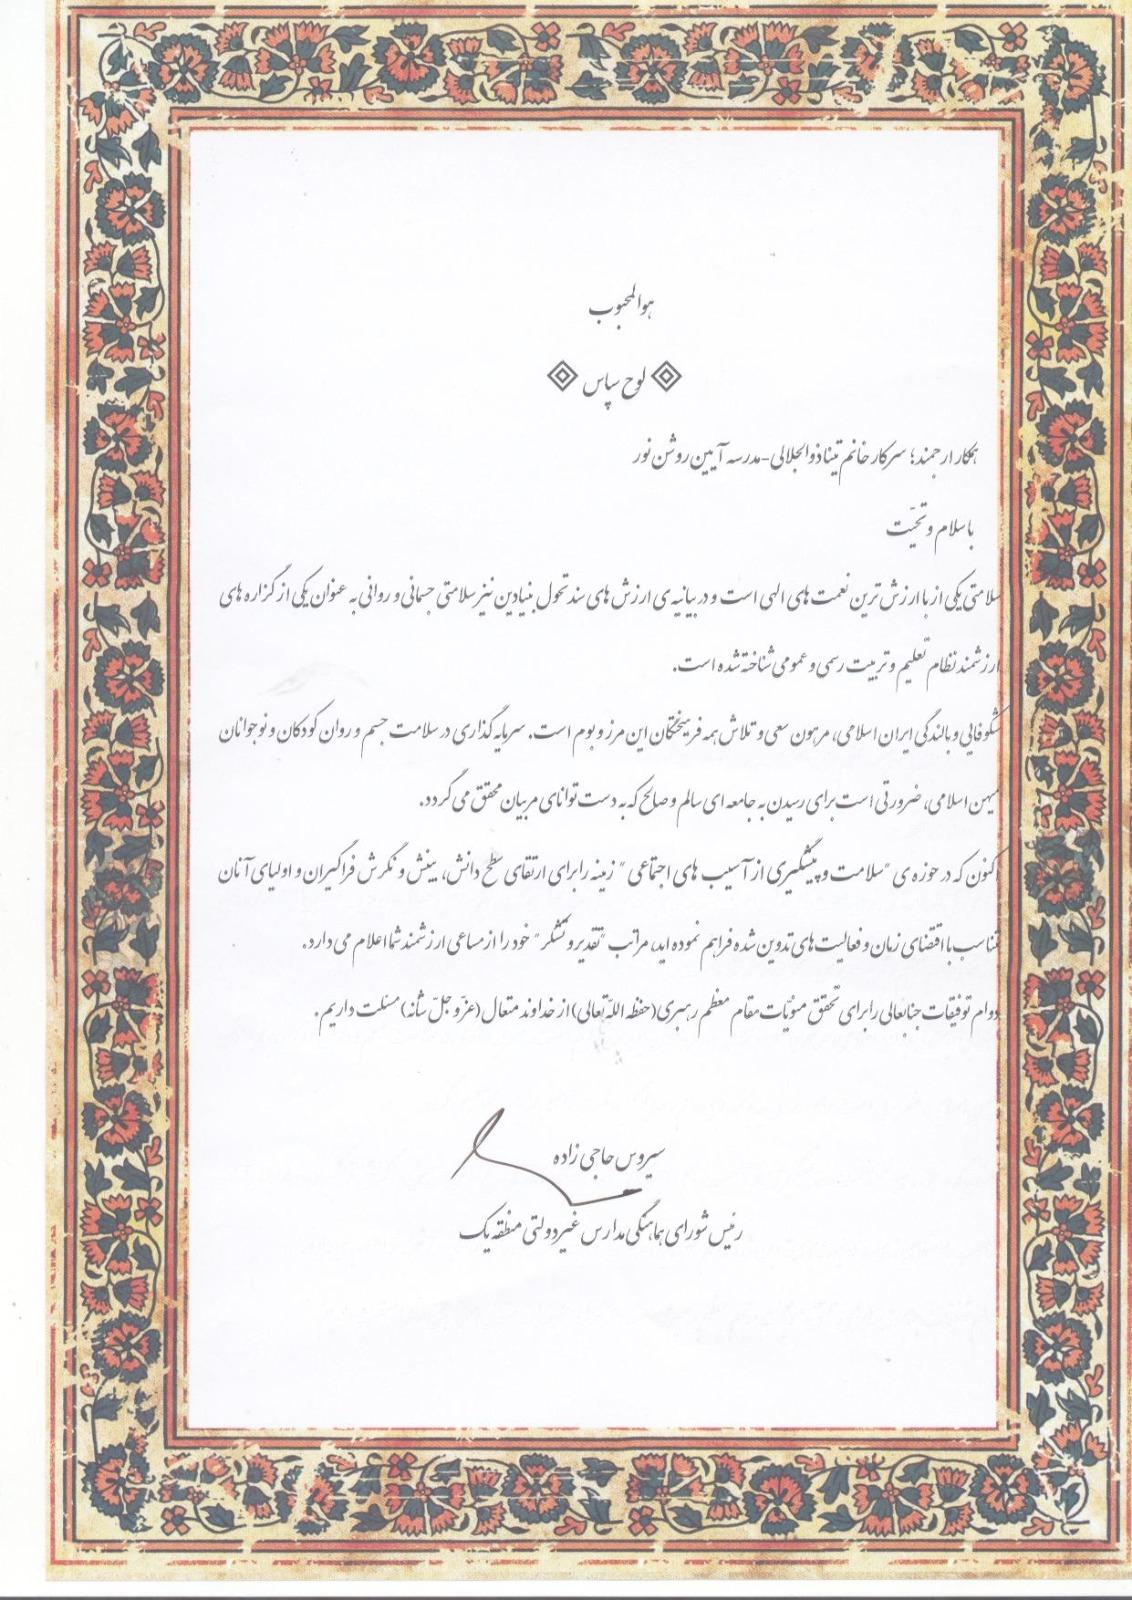 هوالمحبوب
لوح سپاس
همکار ارجمند؛ سرکار خانم تینا ذوالجلالی-مدرسه آیین روشن نور
با سلام و تحیّت
سلامتی یکی از با ارزش ترین نعمت های الهی است و در بیانیه ی ارزش های سند تحول بنیادین نیز سلامتی جسمانی و روانی به عنوان یکی از گزاره های
ارزشمند نظام تعلیم و تربیت رسمی و عمومی شناخته شده است.
شکوفایی و بالندگی ایران اسلامی، مرهون سعی و تلاش همه فرهیختگان این مرز و بوم است. سرمایه گذاری در سلامت جسم و روان کودکان و نوجوانان
میهن اسلامی، ضرورتی است برای رسیدن به جامعه ای سالم و صالح که به دست توانای مربیان محقق می گردد.
اکنون که در حوزه ی "سلامت و پیشگیری از آسیب های اجتماعی" زمینه را برای ارتقای سطح دانش، بینش و نگرش فراگیران و اولیای آنان
متناسب با اقتضای زمان و فعالیت های تدوین شده فراهم نموده اید، مراتب "تقدیر و تشکر" خود را از مساعی ارزشمند شما اعلام می دارد.
دوام توفیقات جنابعالی را برای تحقق منویّات مقام معظم رهبری (حفظه اللّه تعالی) از خداوند متعال (عزّ و جلّ شأنه) مسئلت داریم.
سیروس حاجی زاده
رئیس شورای هماهنگی مدارس غیردولتی منطقه یک